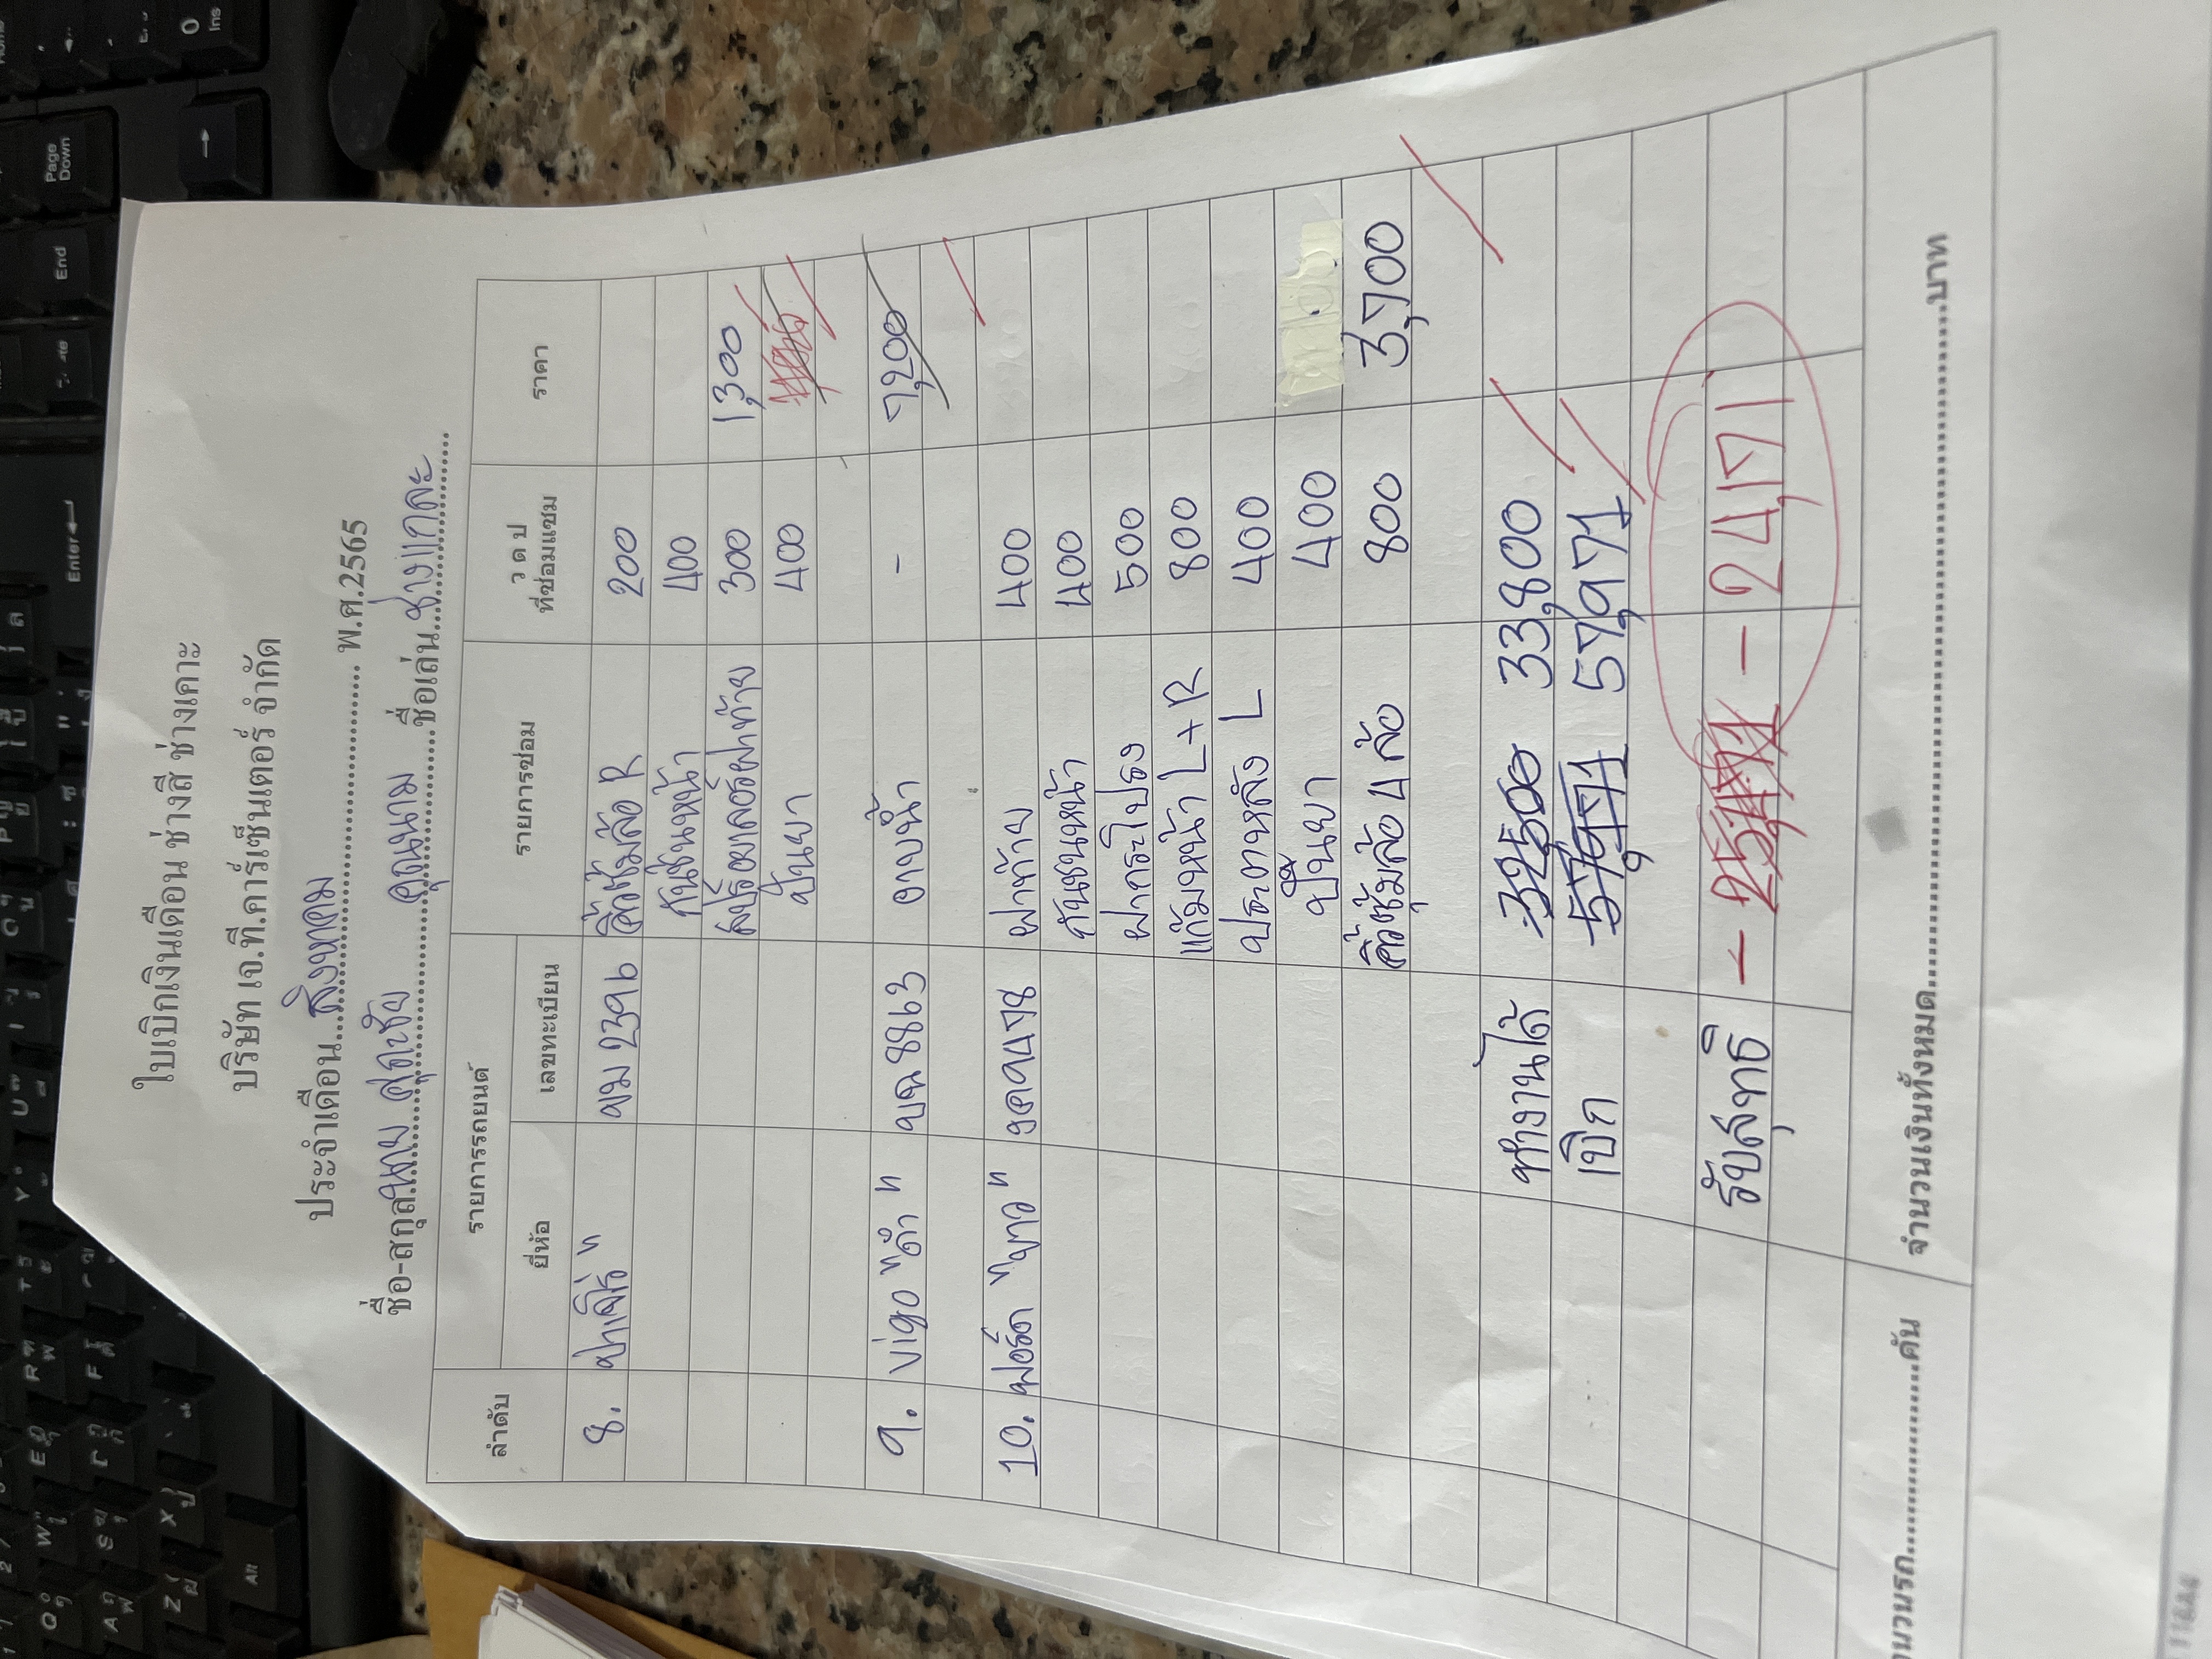 ใบเบิกเงินเดือน ช่างสี ช่างเคาะ
บริษัท เจ.ที.คาร์เซ็นเตอร์ จำกัด
ประจำเดือน สิงหาคม พ.ศ.2565
ชื่อ-สกุล นาย สุดชัย คุณนาม ชื่อเล่น ช่างแกละ
ลำดับ รายการรถยนต์ รายการซ่อม ว ด ป ที่ซ่อมแซม ราคา
ยี่ห้อ เลขทะเบียน
8. ปาเจโร่ " ขม 2396 คิ้วซุ้มล้อ R 200
กันชนหน้า 400
สปร์อยเลอร์ฝาท้าย 300 1,300
ปั่นยา 400
9. vigo "ดำ" บฉ 8863 อาบน้ำ - 7,200
10. ฟอร์ด "ขาว" 9478 ฝาท้าย 400
กันชนหน้า 400
ฝากระโปรง 500
แก้มหน้า L+R 800
ประตูหลัง L 400
ปั่นยา 400
คิ้วซุ้มล้อ 4 ล้อ 800 3,700
ทำงานได้ 32,500 33,800
เบิก 57,971 57,971
รับสุทธิ - - 24,171
จำนวนรถ คัน จำนวนเงินทั้งหมด บาท